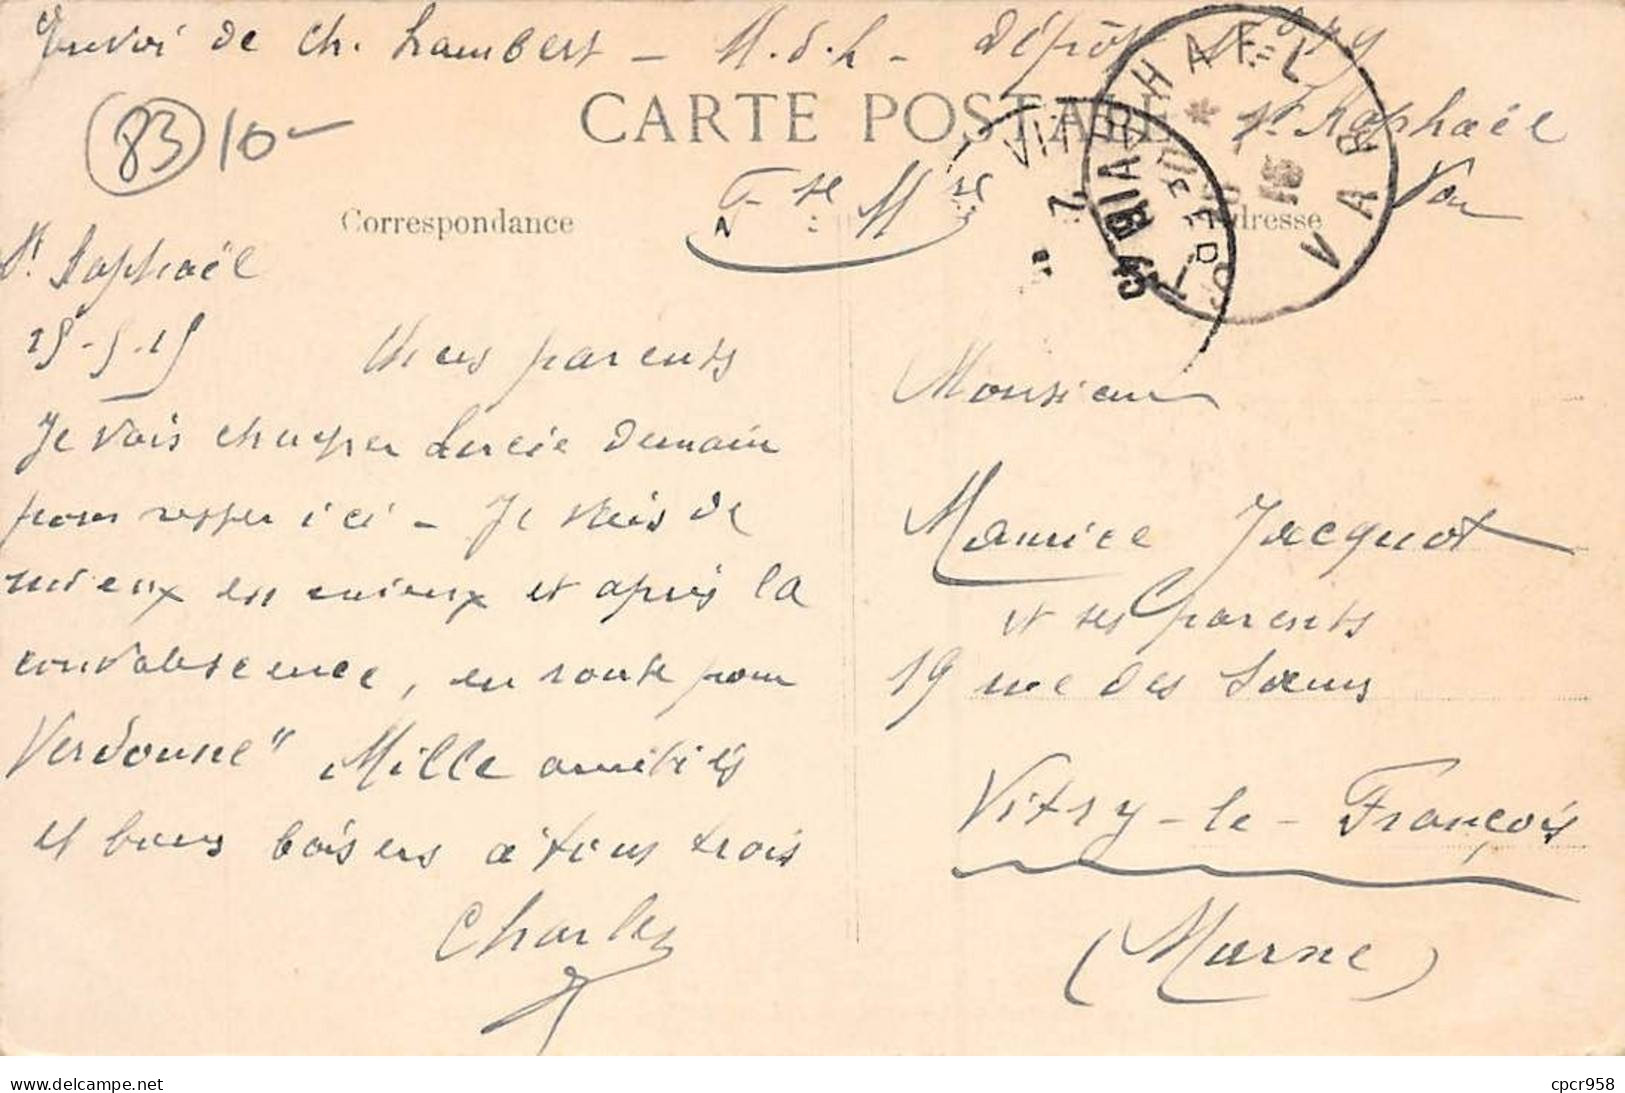 Envoi de Ch. Lambert - M.d.L - Dépôt
CARTE POSTALE
St. Raphaël
Var
Fse Mre
83
10-
Correspondance
Adresse
RAPHAEL
VAR
VITRY
St. Raphaël
15-5-15
Chers parents
Je vais chercher Lucie demain
pour rester ici - Je vais de
mieux en mieux et après la
convalescence, en route pour
Verdonne" Mille amitiés
et bons baisers à tous trois
Charles
Monsieur
Maurice Jacquot
et ses parents
19 rue des Soeurs
Vitry-le-François
(Marne)
cpcr958